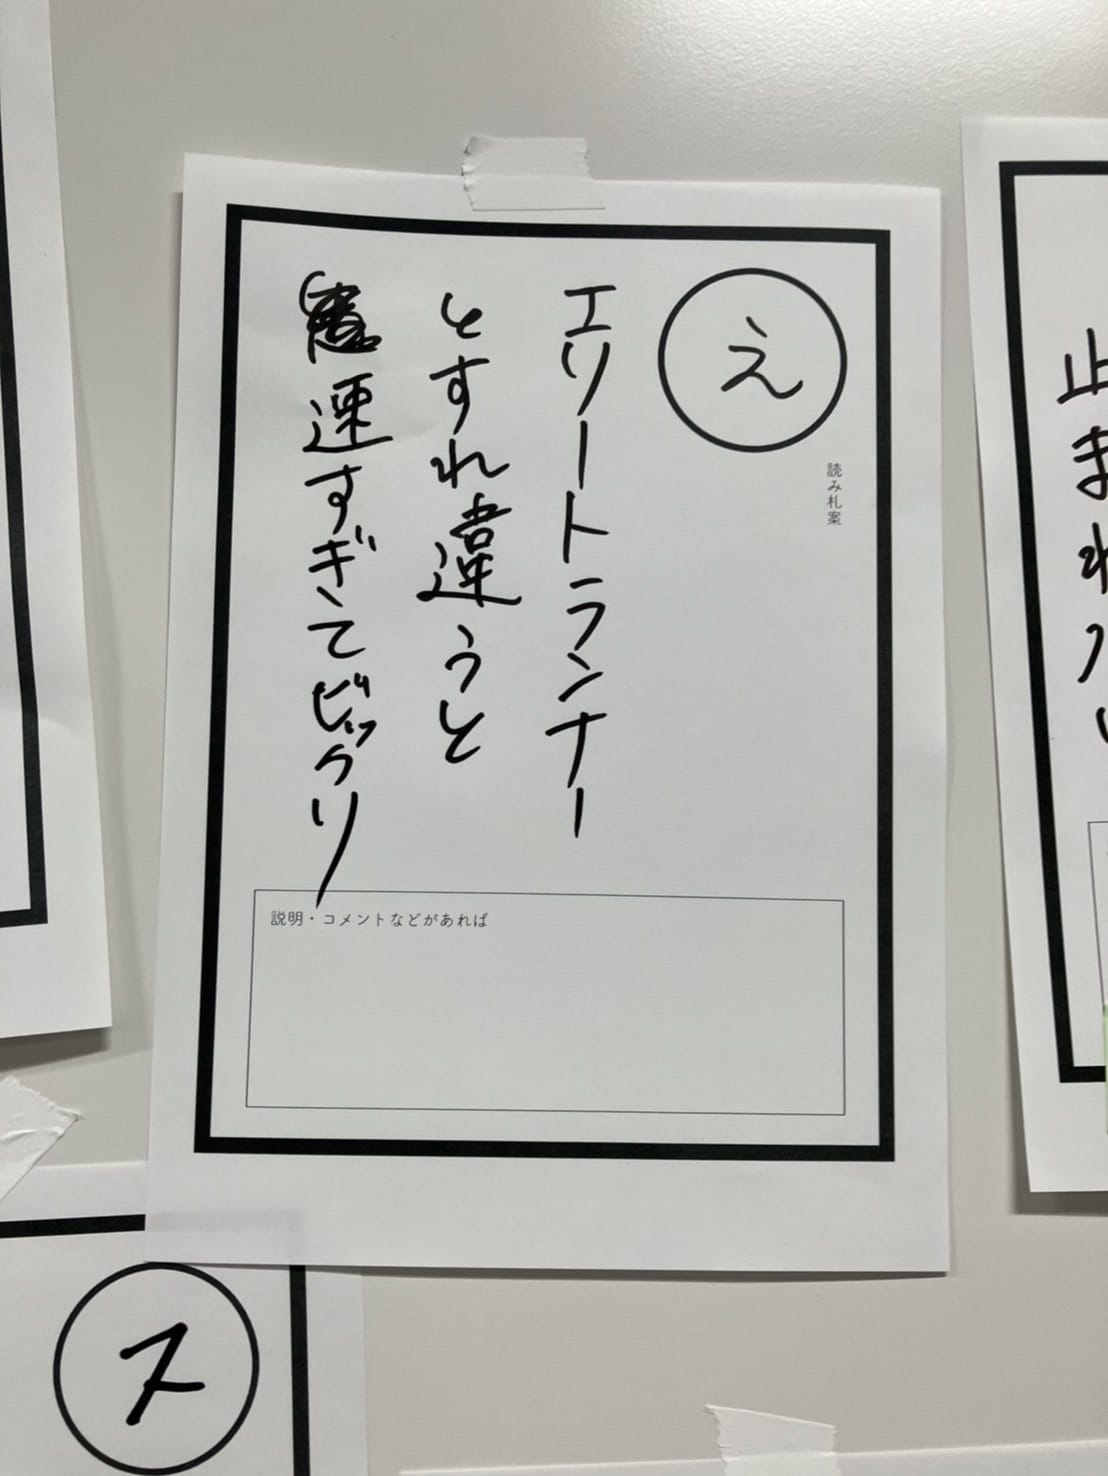 え
読み札案
エリートランナー
とすれ違うと
速すぎてビックリ
説明・コメントなどがあれば
止まれない
ス